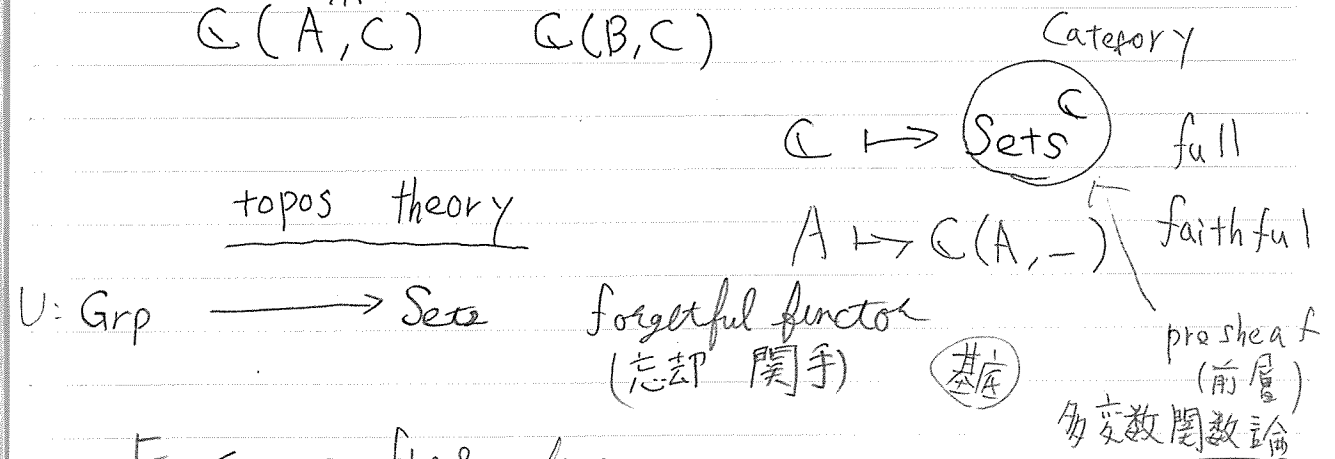 ℂ(A,C) ℂ(B,C)
Category
ℂ ↦ Sets^ℂ full
topos theory
A ↦ ℂ(A,−) faithful
U: Grp ⟶ Sets forgetful functor
presheaf
(忘却 関手) 基底 (前層)
多変数関数論